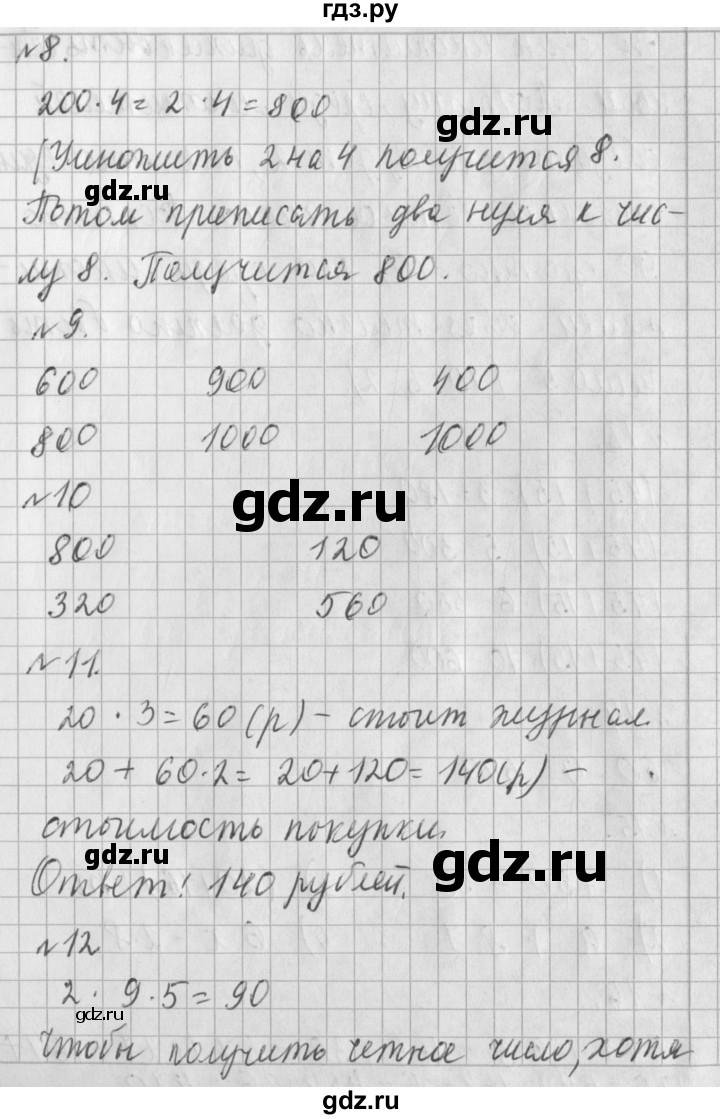 гдз.ру
№8.
200·4=2·4=800
(Умножить 2 на 4 получится 8.
Потом приписать два нуля к чис-
лу 8. Получится 800.
№9.
600 900 400
800 1000 1000
№10
800 120
320 560
№11.
20·3=60(р)-стоит журнал.
20+60·2=20+120=140(р)-
стоимость покупки.
Ответ: 140 рублей.
№12
2·9·5=90
Чтобы получить четное число, хотя
gdz.ru
gdz.ru
gdz.ru
gdz.ru
gdz.ru
gdz.ru
gdz.ru